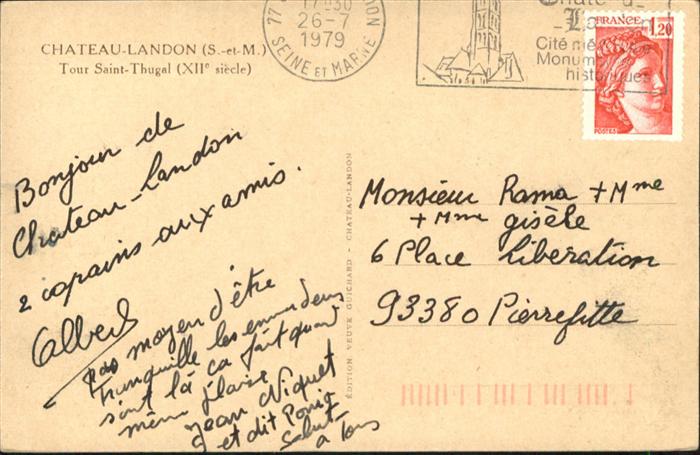 CHATEAU-LANDON (S.-et-M.)
Tour Saint-Thugal (XIIe siècle)
77
17-30
26-7
1979
SEINE ET MARNE
Cité
Monum
historiques
FRANCE 1,20
POSTES
Bonjour de
Chateau-Landon
2 copains aux amis.
Albert
pas moyen d'être
tranquille les emmerdeurs
sont là ça fait quand
même plaisir
Jean Niquet
et dit
Salut
a tous
ÉDITION VEUVE GUICHARD - CHATEAU-LANDON
Monsieur Rama + Mme
+ Mme gisèle
6 Place Libération
93380 Pierrefitte